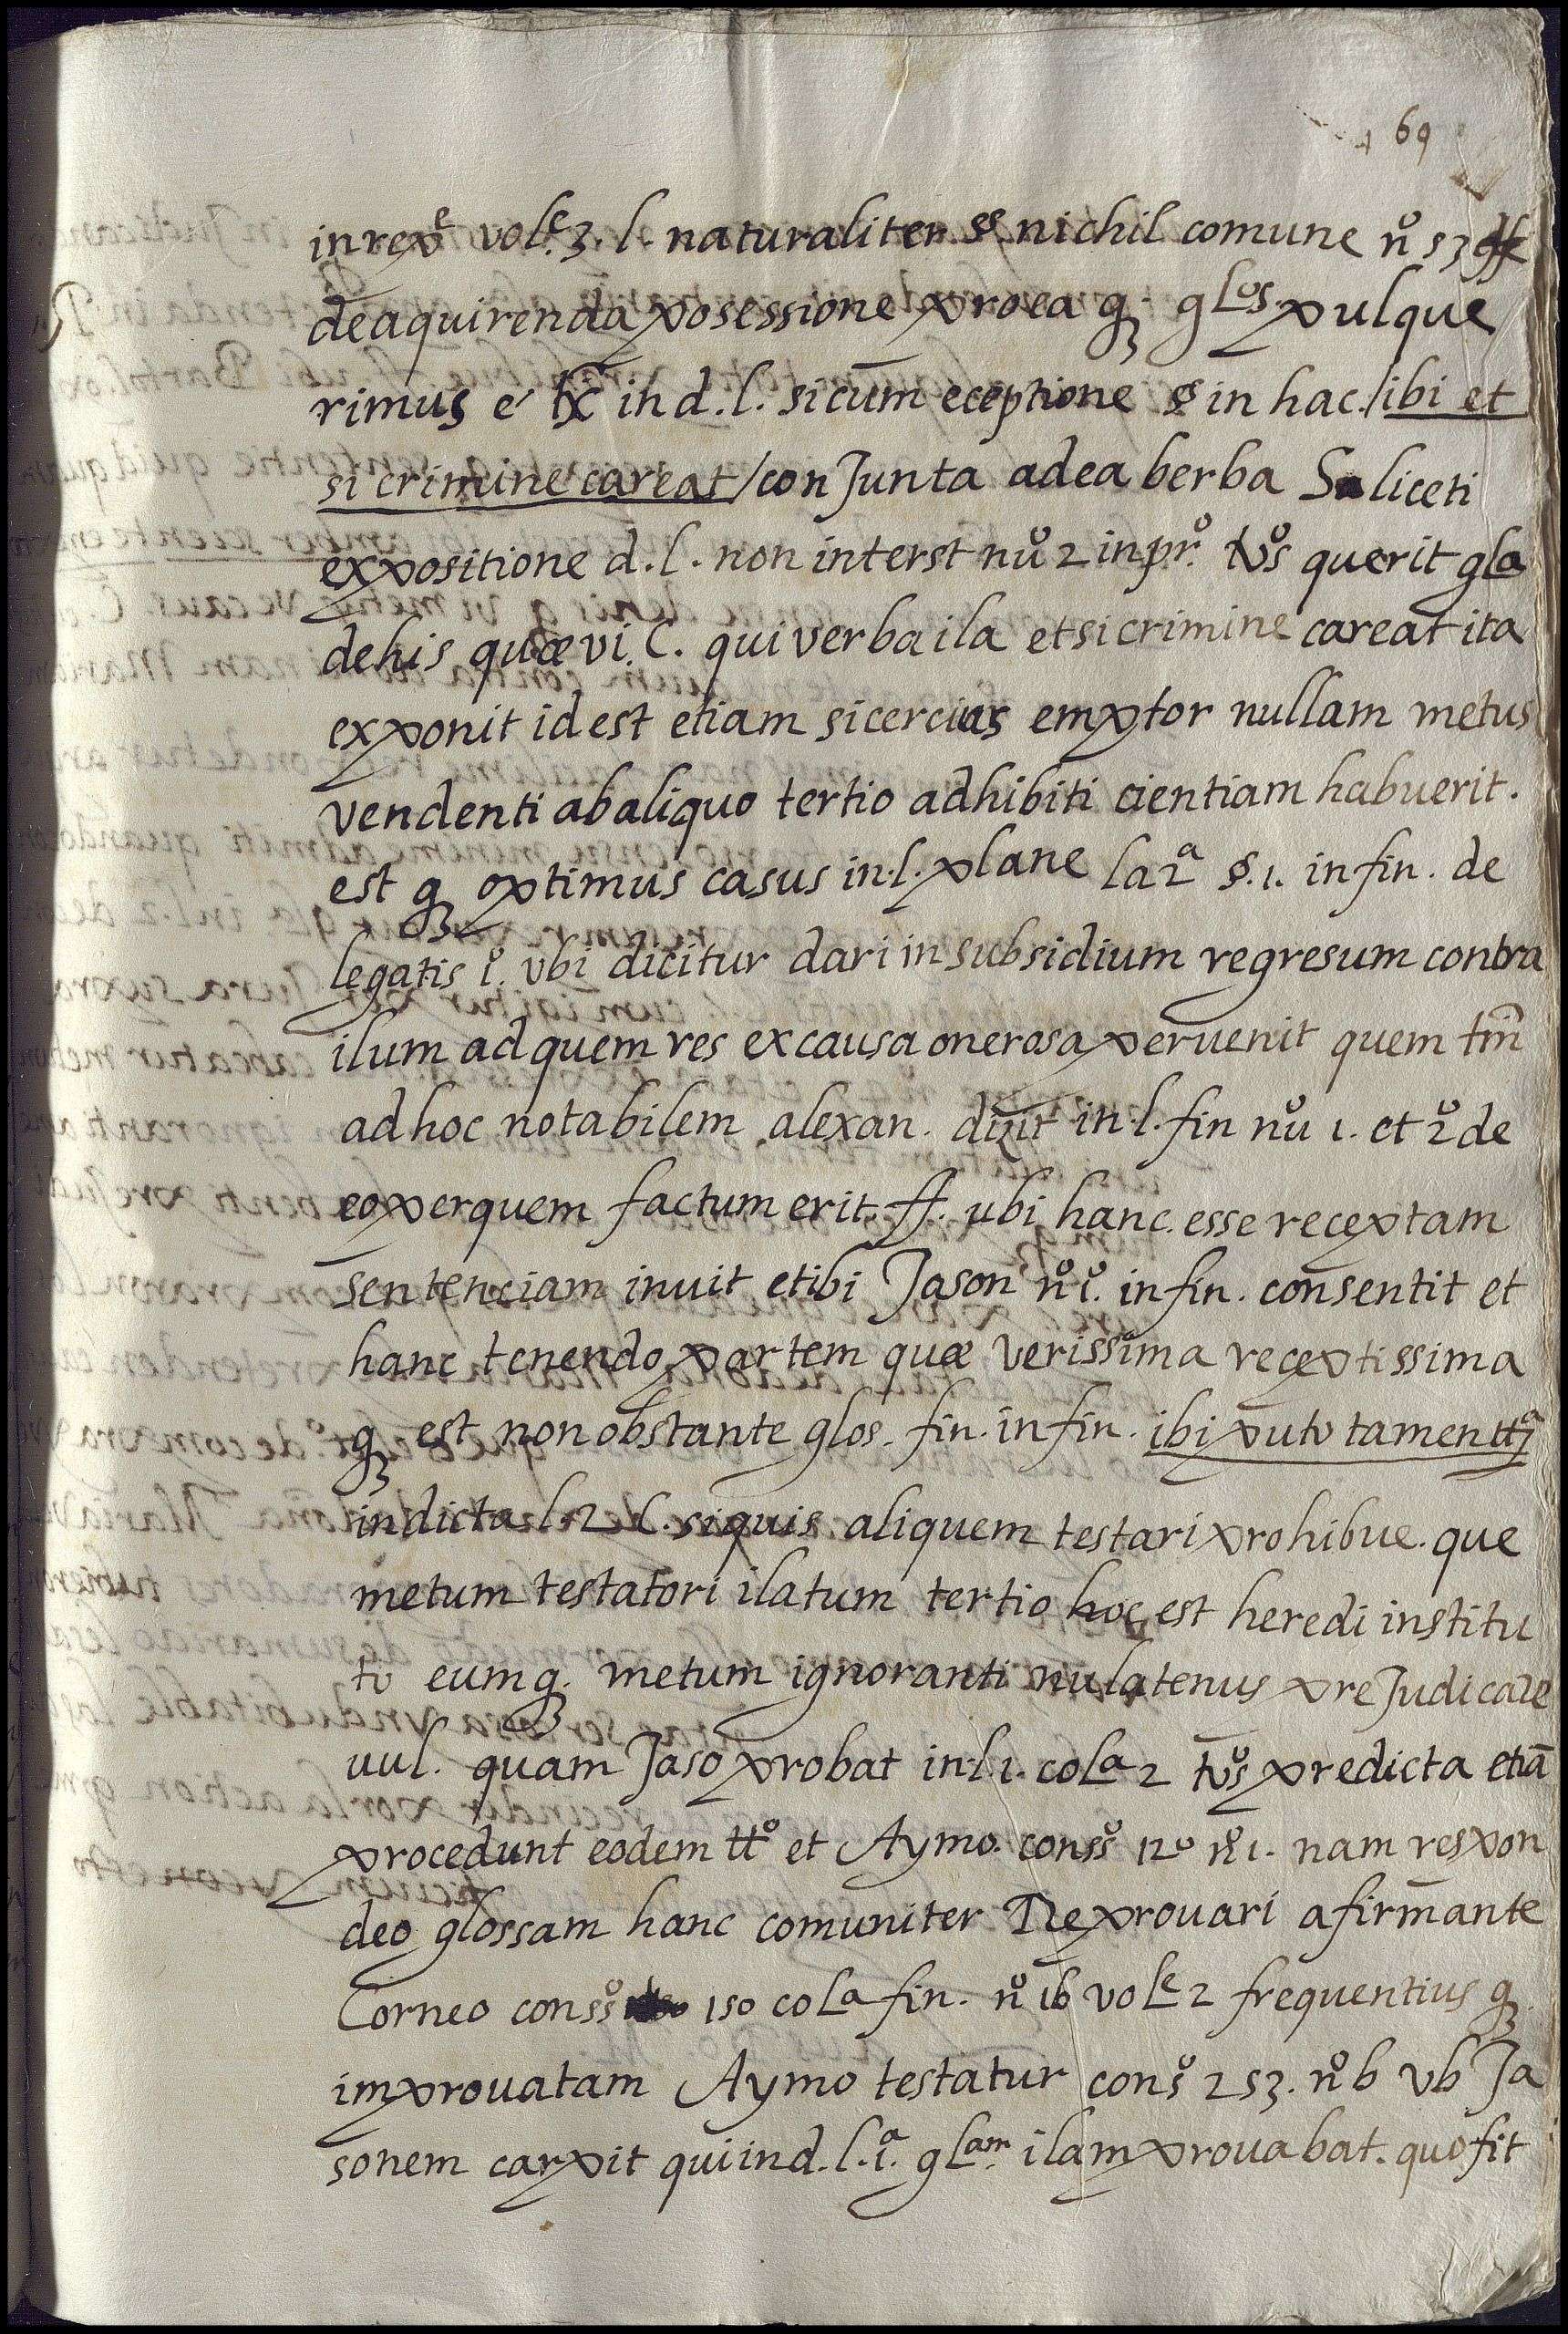 69
in repe vole 3. l. naturaliter §. nichil comune nº 53 ff
de aquirenda posessione pro ea q glos. pulque
rimus e tx in d. l. si cum eceptione § in hac. / ibi et
si crimine careat / conJunta ad ea berba Saliceti
expositione d. l. non interst nuº 2 in prº. tvºs querit gla
de his quæ vi. C. qui verba ila et si crimine careat ita
exponit id est etiam si cercius emptor nullam metus
vendenti ab aliquo tertio adhibiti cientiam habuerit.
est q optimus casus in l. plane la 2ª §. 1. in fin. de
legatis 1º. vbi dicitur dari in subsidium regresum contra
ilum ad quem res ex causa onerosa peruenit quem tm̃
ad hoc notabilem alexan. dixit in l. fin nuº 1. et 2º de
eo per quem factum erit. ff. ubi hanc esse receptam
sentenciam inuit et ibi Jason nº 1º. in fin. consentit et
hanc tenendo partem quæ verissima receptissima
q est non obstante glos. fin. in fin. ibi puto tamen ttª
in dicta l. 2 C. si quis aliquem testari prohibue. que
metum testatori ilatum tertio hoc est heredi institu
to eumq. metum ignoranti nulatenus preJudicare
uul. quam Jaso probat in l. 1. cola 2 tvºs predicta etiã
procedunt eodem ttº et Aymo. consº 120 nº 1. nam respon
deo glossam hanc comuniter Reprouari afirmante
Corneo consº 150 cola fin. nº 16 vole 2 frequentius q
improuatam Aymo testatur consº 253. nº 6 vb Ja
sonem carpit qui in d. l. 1ª. glam. ilam prouabat. quo fit